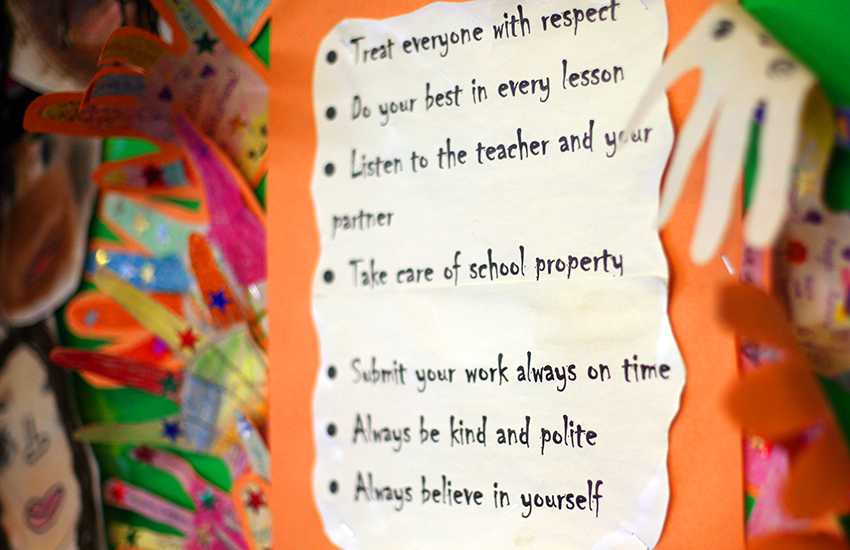 • Treat everyone with respect
• Do your best in every lesson
• Listen to the teacher and your
partner
• Take care of school property
• Submit your work always on time
• Always be kind and polite
• Always believe in yourself